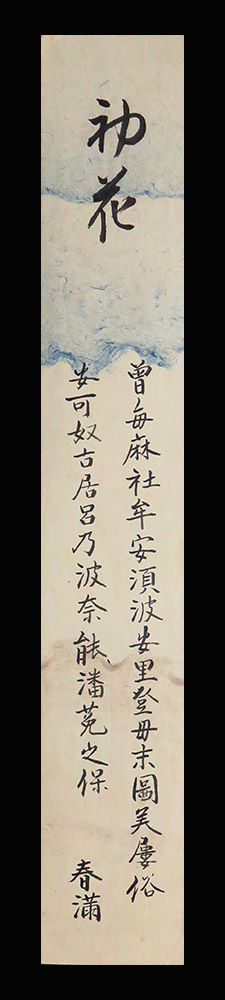 初花
曽毎麻社牟安須波安里登毋末圖美屢俗
安可奴古居呂乃波奈能潘菟之保
春滿